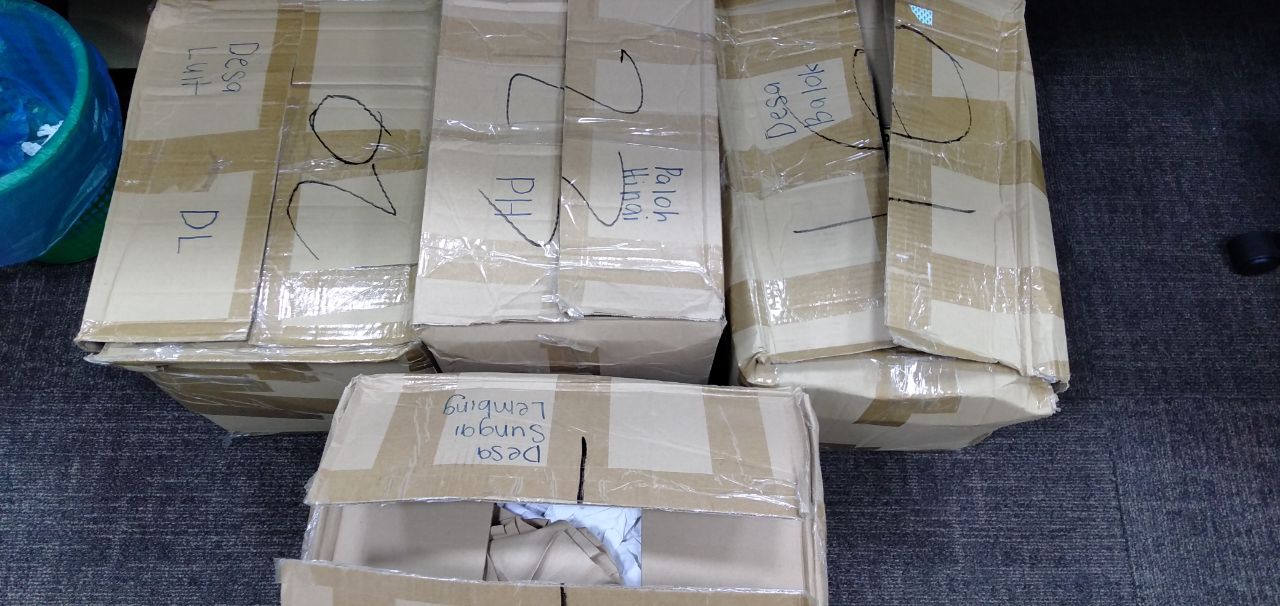 Desa
Lut
DL
Paloh
Hinai
PH
Desa
Balok
01
Desa
Sungai
Lembing